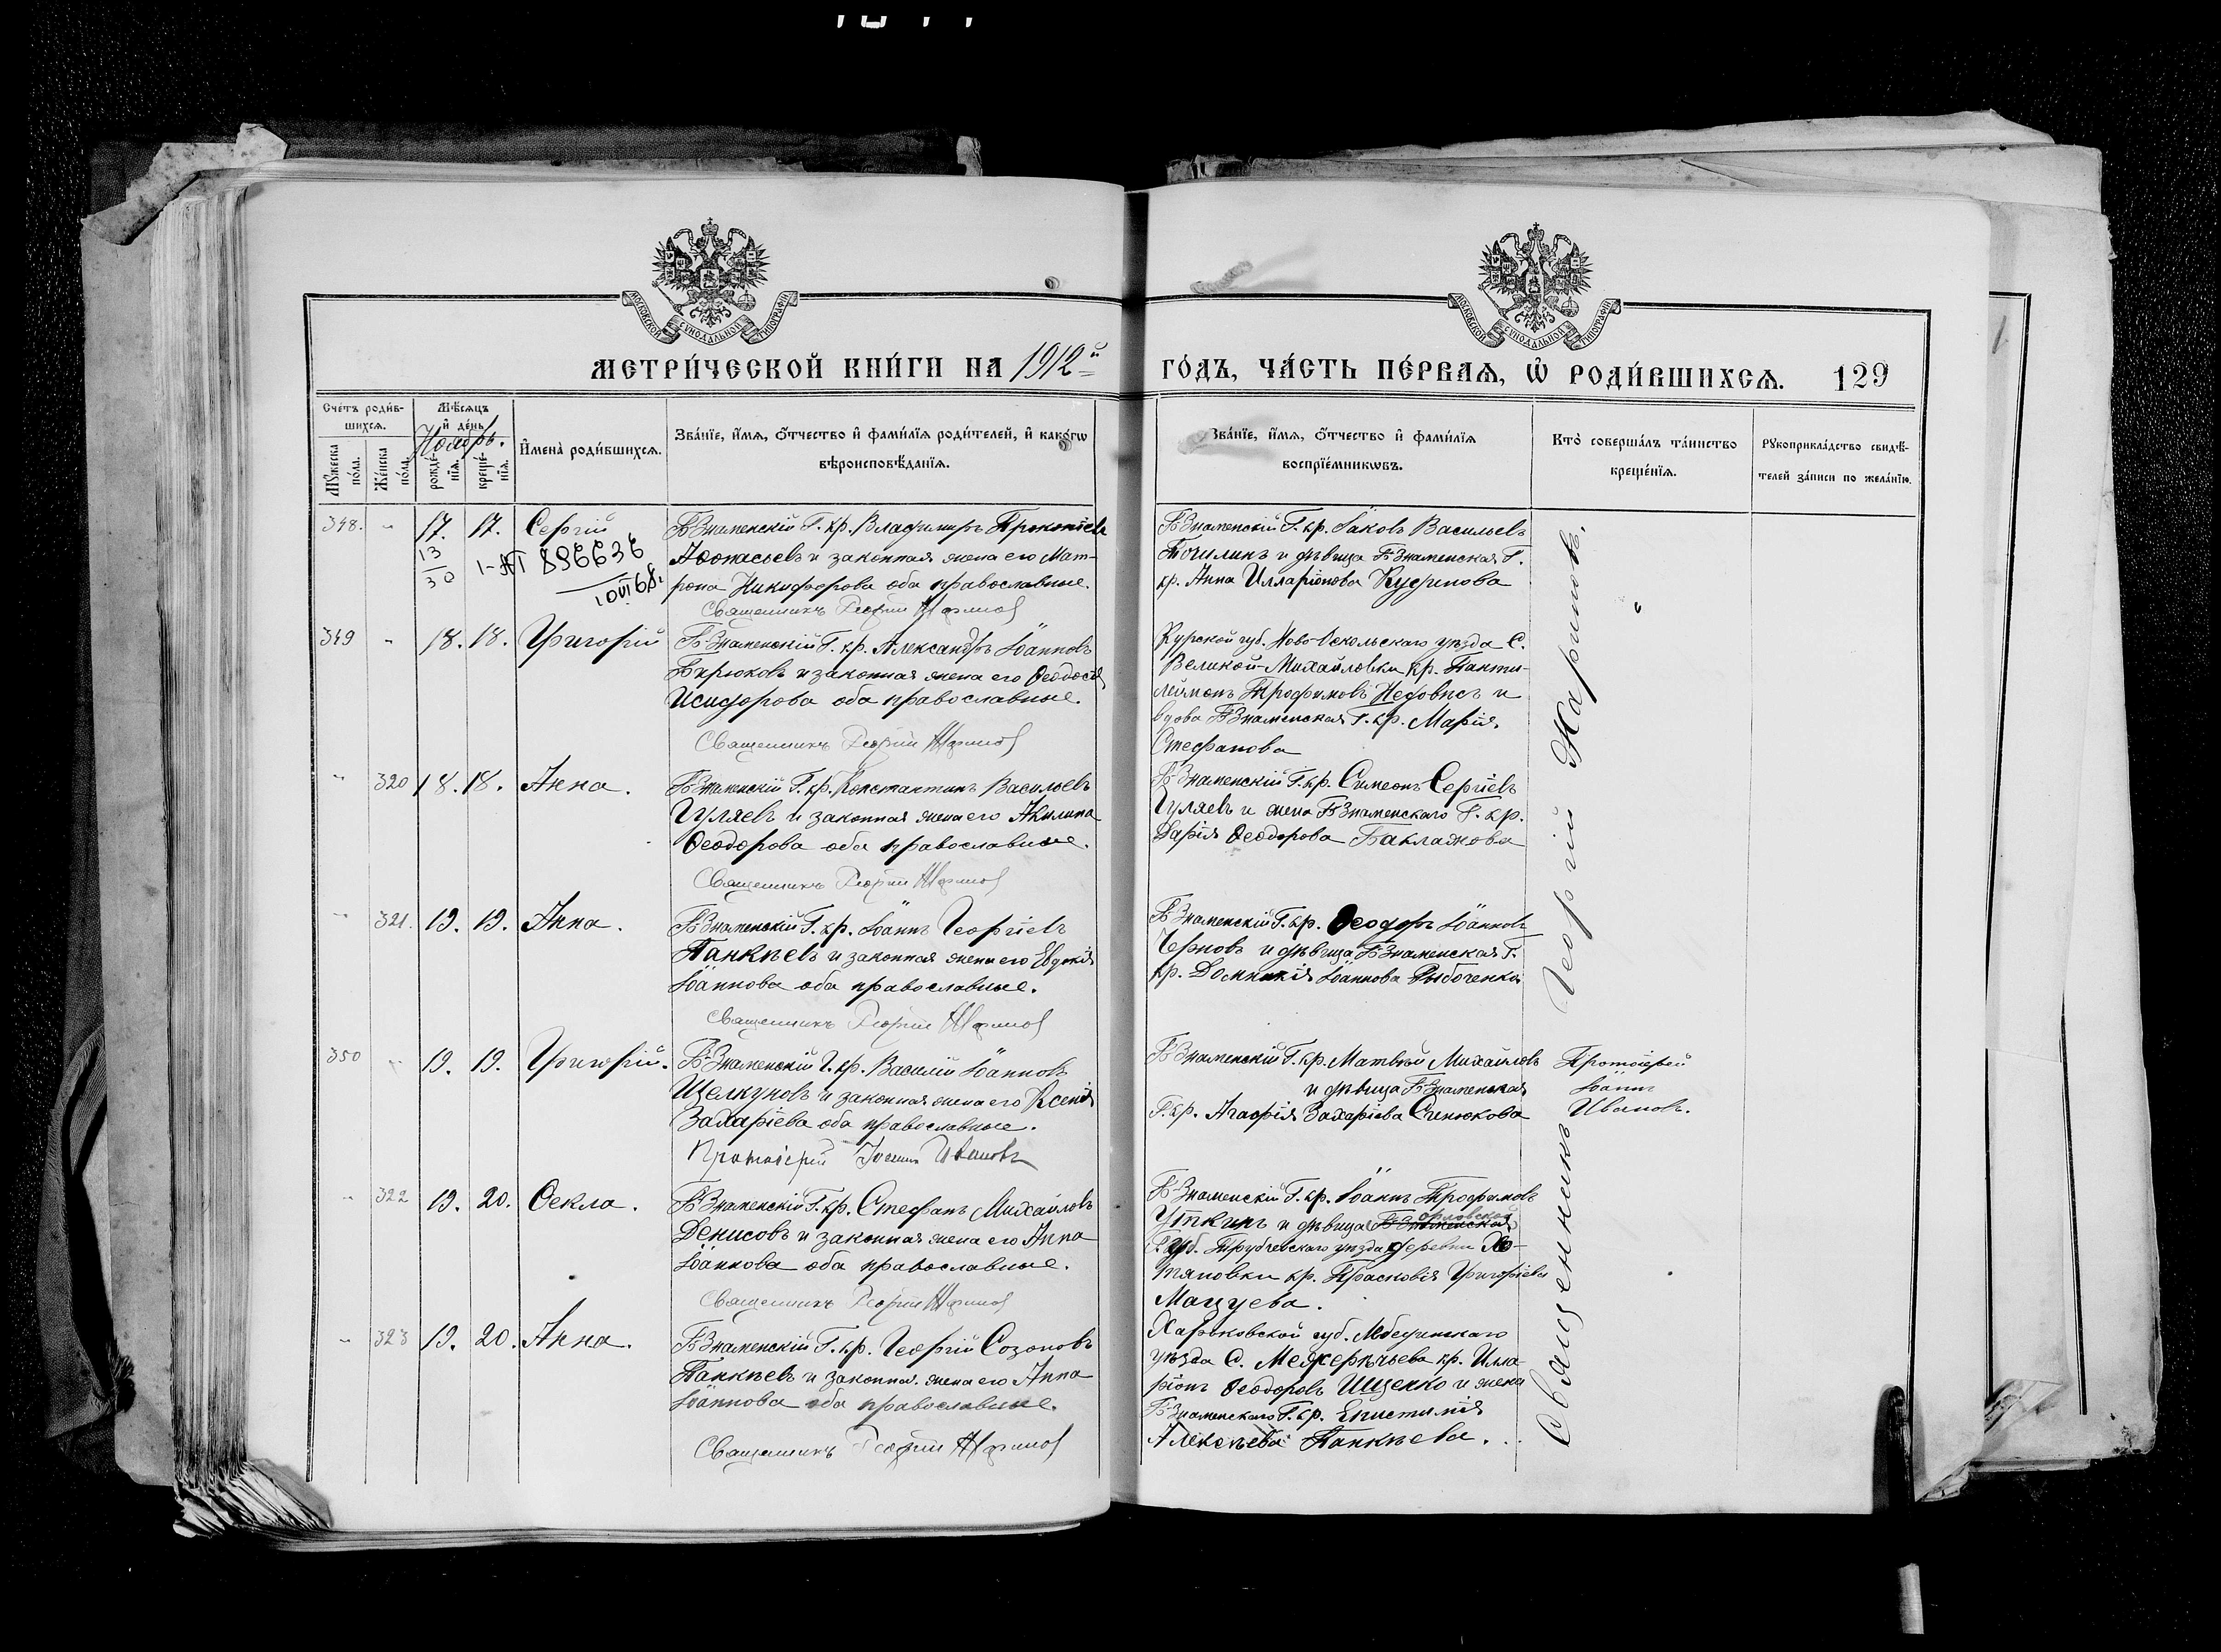 МОСКОВСКОЙ СѴНОДАЛЬНОЙ ТИПОГРАФІИ
МОСКОВСКОЙ СѴНОДАЛЬНОЙ ТИПОГРАФІИ
МЕТРИ́ЧЕСКОЙ КНИ́ГИ НА 1912й
ГО́ДЪ, ЧА́СТЬ ПЕ́РВАѦ, Ѡ҆ РОДИ́ВШИХСѦ. 129
Сче́тъ роди́в-
шихсѧ.
Мꙋ́жеска по́ла.
Же́нска по́ла.
Мѣ́сѧцъ и҆ де́нь
Ноябрь.
рожде́-
нїѧ.
креще́-
нїѧ.
И҆мена̀ роди́вшихсѧ.
Зва́нїе, и҆́мѧ, ѻ҆́тчество и҆ фами́лїѧ роди́телей, и҆ како́гѡ
вѣроисповѣ́данїѧ.
Зва́нїе, и҆́мѧ, ѻ҆́тчество и҆ фами́лїѧ
воспрїе́мникѡвъ.
Кто̀ соверша́лъ та́инство
креще́нїѧ.
Рꙋкоприкла́дство свидѣ́-
телей за́писи по жела́нїю.
348. " 17. 17. Сергій
13
30
1-АП 896636
Б Знаменскій Г. кр. Владимиръ Прокопіевъ
Аѳонасьевъ и законная жена его Мат-
рона Никифорова оба православные.
Священникъ Георгій
Б Знаменскій Г. кр. Іаковъ Васильевъ
Точилинъ и дѣвица Б Знаменская Г.
кр. Анна Илларіонова
349 " 18. 18. Григорій
Б Знаменскій Г. кр. Александръ Іоанновъ
Бирюковъ и законная жена его Ѳеодосія
Исидорова оба православные.
Священникъ Георгій
Курской губ. Ново-Оскольскаго уѣзда С.
Великой-Михайловки кр. Панти-
леймонъ Трофимовъ и
вдова Б Знаменская Г. кр. Марія
Стефанова
" 320 18. 18. Анна.
Б Знаменскій Г. кр. Константинъ Васильевъ
Гуляевъ и законная жена его Акилина
Ѳеодорова оба православные.
Священникъ Георгій
Б Знаменскій Г. кр. Симеонъ Сергіевъ
Гуляевъ и жена Б Знаменскаго Г. кр.
Дарія Ѳеодорова Баклажова
" 321. 19. 19. Анна.
Б Знаменскій Г. кр. Іоаннъ Георгіевъ
Панкѣевъ и законная жена его Евдокія
Іоаннова оба православные.
Священникъ Георгій
Б Знаменскій Г. кр. Ѳеодоръ Іоанновъ
Черновъ и дѣвица Б Знаменская Г.
кр. Домникія Іоаннова
350 " 19. 19. Григорій.
Б-Знаменскій Г. кр. Василій Іоанновъ
Щелкуновъ и законная жена его Ксенія
Захаріева оба православные.
Протоіерей Іоаннъ Ивановъ
Б Знаменскій Г. кр. Матвѣй Михайловъ
и дѣвица Б Знаменская
Г. кр. Агафія Захаріева Сенюкова
Протоіерей
Іоаннъ
Ивановъ.
" 322 19. 20. Ѳекла.
Б Знаменскій Г. кр. Стефанъ Михайловъ
Денисовъ и законная жена его Анна
Іоаннова оба православные.
Священникъ Георгій
Б Знаменскій Г. кр. Іоаннъ Трофимовъ
Уткинъ и дѣвица Б Знаменская Орловской
губ. Трубчевскаго уѣзда деревни Хо-
тяновки кр. Прасковія Григоріева
Мацуева.
" 323 19. 20. Анна.
Б Знаменскій Г. кр. Георгій Созоновъ
Панкѣевъ и законная жена его Анна
Іоаннова оба православные.
Священникъ Георгій
Харьковской губ. Лебединскаго
уѣзда С. Межерѣчьева кр. Илла-
ріонъ Ѳеодоровъ Ищенко и жена
Б Знаменскаго Г. кр. Епистимія
Алексѣева Панкѣева.
Священникъ Георгій